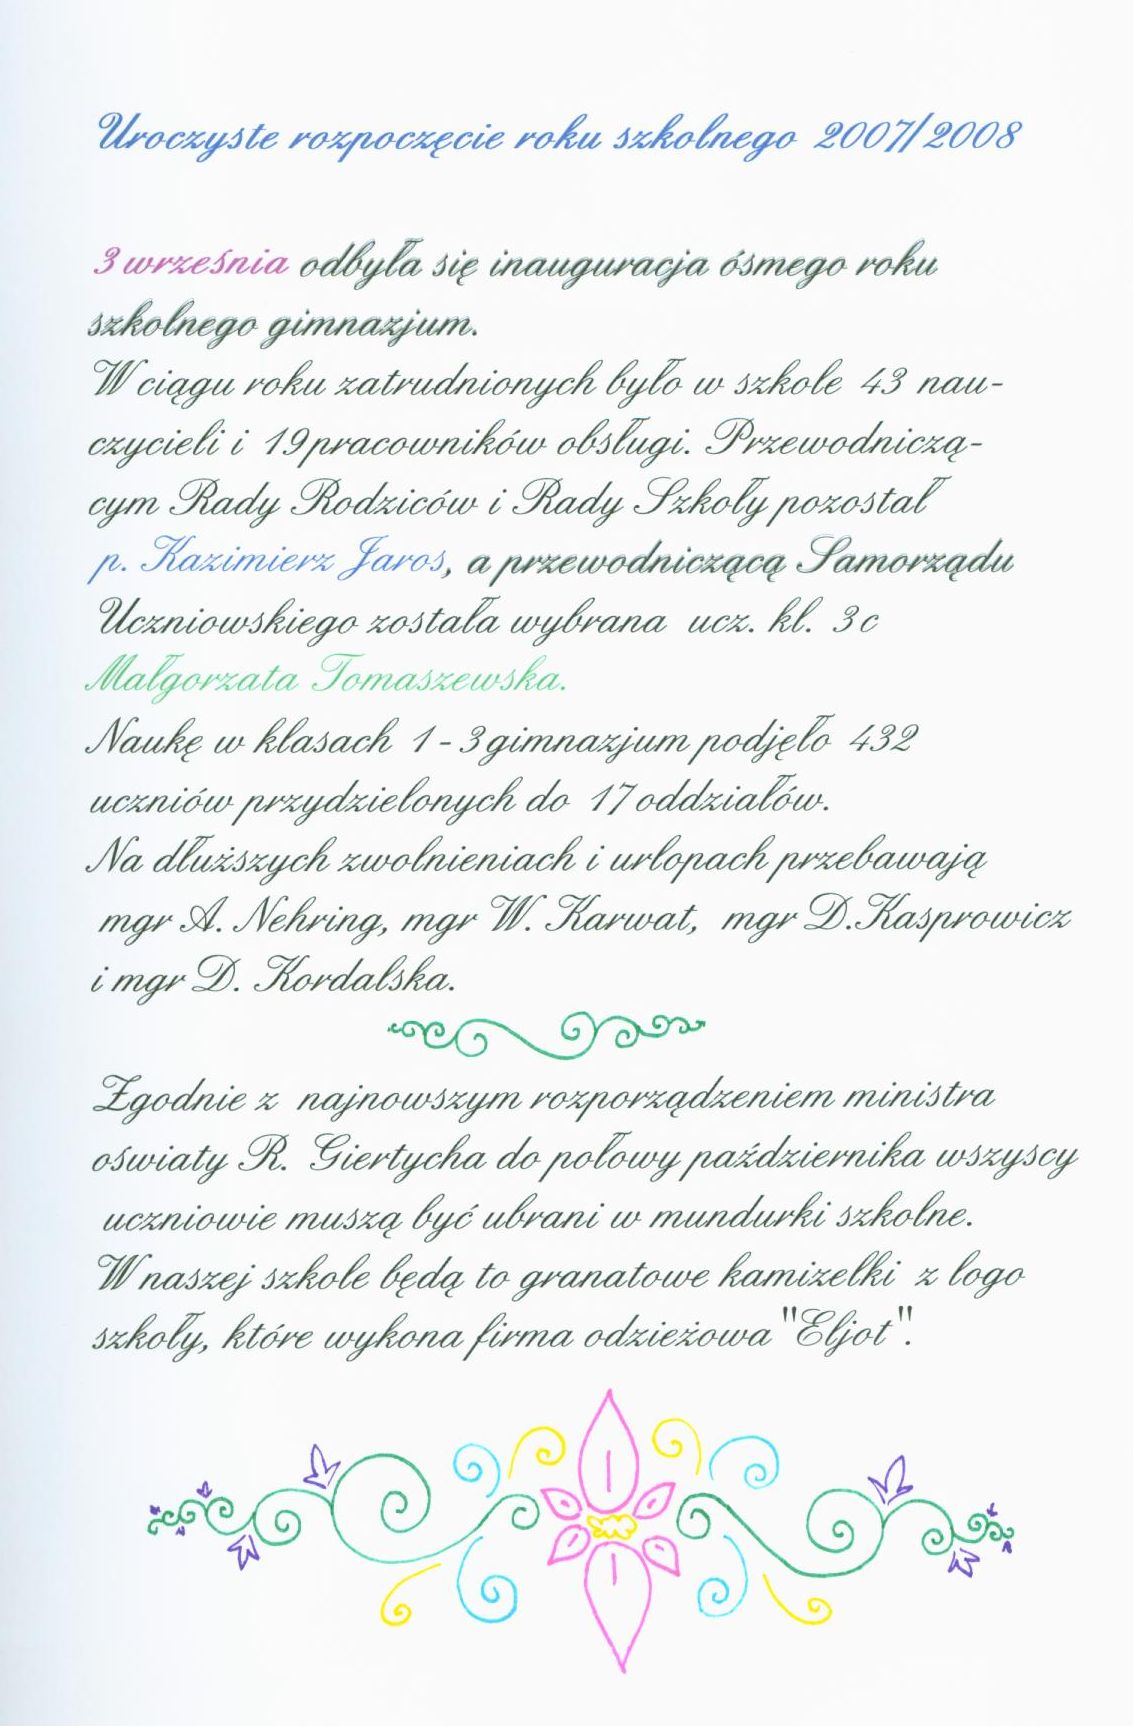 Uroczyste rozpoczęcie roku szkolnego 2007/2008
3 września odbyła się inauguracja ósmego roku
szkolnego gimnazjum.
W ciągu roku zatrudnionych było w szkole 43 nau-
czycieli i 19 pracowników obsługi. Przewodniczą-
cym Rady Rodziców i Rady Szkoły pozostał
p. Kazimierz Jaros, a przewodniczącą Samorządu
Uczniowskiego została wybrana ucz. kl. 3 c
Małgorzata Tomaszewska.
Naukę w klasach 1 - 3 gimnazjum podjęło 432
uczniów przydzielonych do 17 oddziałów.
Na dłuższych zwolnieniach i urlopach przebawają
mgr A. Nehring, mgr W. Karwat, mgr D.Kasprowicz
i mgr D. Kordalska.
Zgodnie z najnowszym rozporządzeniem ministra
oświaty R. Giertycha do połowy października wszyscy
uczniowie muszą być ubrani w mundurki szkolne.
W naszej szkole będą to granatowe kamizelki z logo
szkoły, które wykona firma odzieżowa "Eljot".